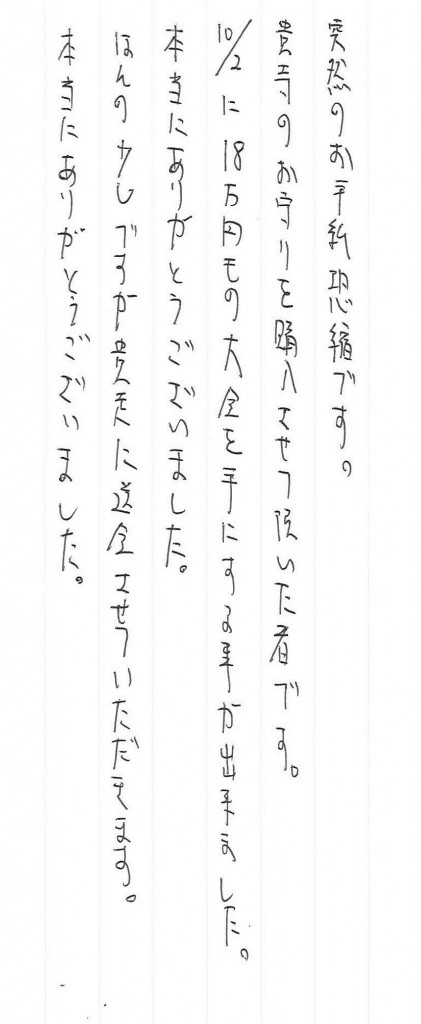 突然のお手紙恐縮です。
貴寺のお守りを購入させて頂いた者です。
10/2に18万円もの大金を手にする事が出来ました。
本当にありがとうございました。
ほんの少しですが貴寺に送金させていただきます。
本当にありがとうございました。